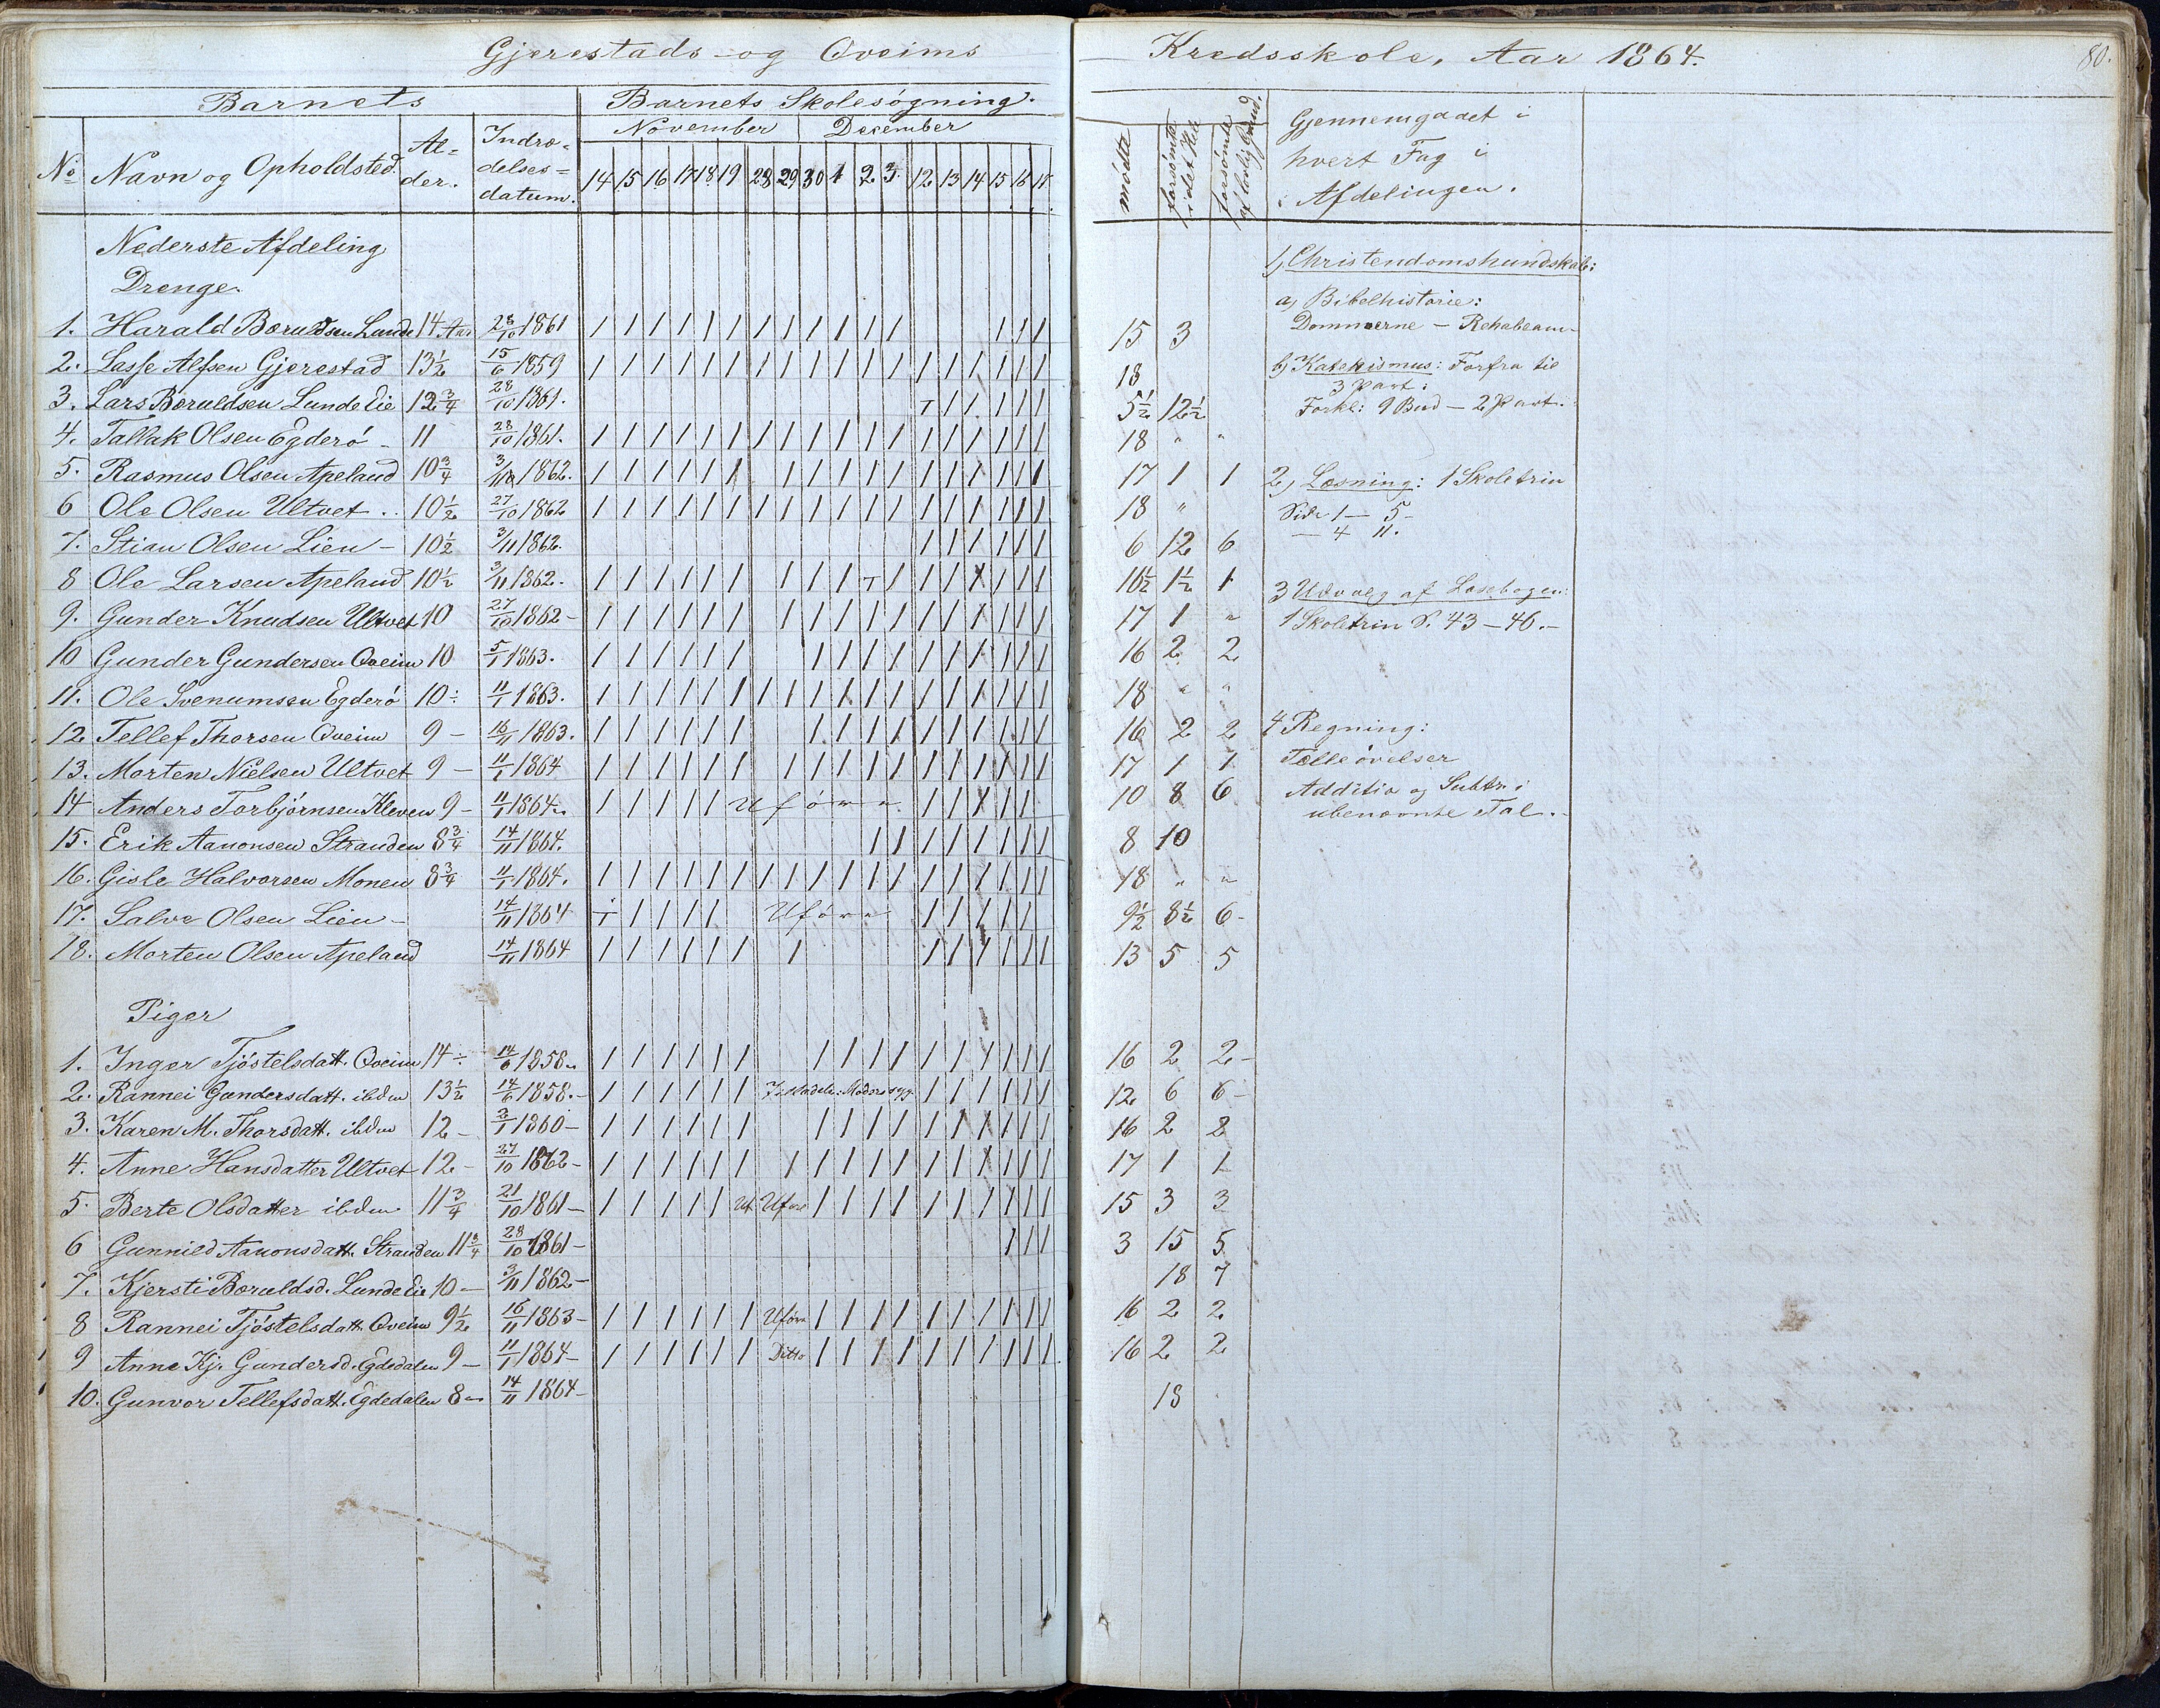 Gjerestads og Qveims Kredsskole, Aar 1864. 80.
Barnets Barnets Skolesøgning.
November December
No Navn og Opholdsted. Al=der. Indræ=delses=datum. 14 15 16 17 18 19 28 29 30 1 2 3 12 13 14 15 16 17 mödte forsömte i det Hele forsömte af lovlig Grund. Gjennemgaaet i hvert Fag i Afdelingen.
Nederste Afdeling
Drenge.
1. Harald Boruldsen Lunde 14 Aar 28/10 1861 / / / / / / / / / / / / / / / 15 3
2. Lasse Alfsen Gjerestad 13½ 15/6 1859 / / / / / / / / / / / / / / / / / / 18
3. Lars Boruldsen Lunde Eie 12¾ 28/10 1861. T / / / / / 5½ 12½
4. Tallak Olsen Egderö - 11 28/10 1861. / / / / / / / / / / / / / / / / / / 18 " "
5. Rasmus Olsen Apeland 10¾ 3/11 1862. / / / / / / / / / / / / / / / / / 17 1 1
6 Ole Olsen Ultvet .. 10½ 27/10 1862 / / / / / / / / / / / / / / / / / / 18 "
7. Stian Olsen Lien - 10½ 3/11 1862. / / / / / / 6 12 6
8 Ole Larsen Apeland 10½ 3/11 1862. / / / / / / / / / T / / / / / / / 16½ 1½ 1
9. Gunder Knudsen Ultvet 10 27/10 1862 - / / / / / / / / / / / / / / / / / 17 1 "
10 Gunder Gundersen Qveim 10 5/1 1863. / / / / / / / / / / / / / / / / 16 2 2
11. Ole Svenumsen Egderö 10 ÷ 11/1 1863. / / / / / / / / / / / / / / / / / / 18 " "
12. Tellef Thorsen Qveim 9 - 16/11 1863. / / / / / / / / / / / / / / / / 16 2 2
13. Morten Nielsen Ultvet 9 - 11/1 1864 / / / / / / / / / / / / / / / / / 17 1 1
14 Anders Torbjörnsen Kleven 9 - 11/1 1864. / / / / / Uföre / / / / / 10 8 6
15. Erik Aanonsen Stranden 8¾ 14/11 1864. / / / / / / / / 8 10
16. Gisle Halvorsen Monen 8¾ 11/1 1864. / / / / / / / / / / / / / / / / / / 18 " "
17. Salve Olsen Lien - 14/11 1864 T / / / / Uföre / / / / / 9½ 8½ 6 -
18. Morten Olsen Apeland 14/11 1864 / / / / / / / / / / / / / 13 5 5
Piger
1. Inger Tjöstelsdatt. Qveim 14 ÷ 14/6 1858. / / / / / / / / / / / / / / / / 16 2 2 -
2. Rannei Gundersdatt. ibdm 13½ 14/6 1858. - / / / / / / Moders syg. / / / / / / 12 6 6 -
3. Karen M. Thorsdatt. ibdm 12 - 2/1 1860 - / / / / / / / / / / / / / / / / 16 2 2
4. Anne Hansdatter Ultvet 12 - 27/10 1862 - / / / / / / / / / / / / / / / / / 17 1 1
5. Berte Olsdatter ibdm. 11¾ 21/10 1861 - / / / / / Uf. Uföre / / / / / / / / / / 15 3 3
6 Gunnild Aanonsdatt. Stranden 11¾ 28/10 1861 - / / / 3 15 5
7. Kjersti Boruldsd. Lunde Eie 10 - 3/11 1862 - 18 7
8 Rannei Tjöstelsdatt. Qveim 9½ 16/11 1863 - / / / / / / Uföre / / / / / / / / / / 16 2 2
9 Anne Kjr. Gundersd. Egdedalen 9 - 11/1 1864 - / / / / / / Ditto / / / / / / / / / / 16 2 2
10. Gunvor Tellefsdatt. Egdedalen 8 - 14/11 1864 - 18
1, Christendomskundskab:
a, Bibelhistorie:
Dommerne - Rehabeam -
b, Katekismus: Forfra til
3 Part:
Forkl: 9 Bud - 2 Part.
2, Læsning: 1 Skoletrin
Side 1 - 5 -
- 4 11.
3 Udvalg af Læsebogen:
1 Skoletrin S. 43 - 46. -
4 Regning:
Tælleövelser
Additio og Subtr. i
ubenævnte Tal. -